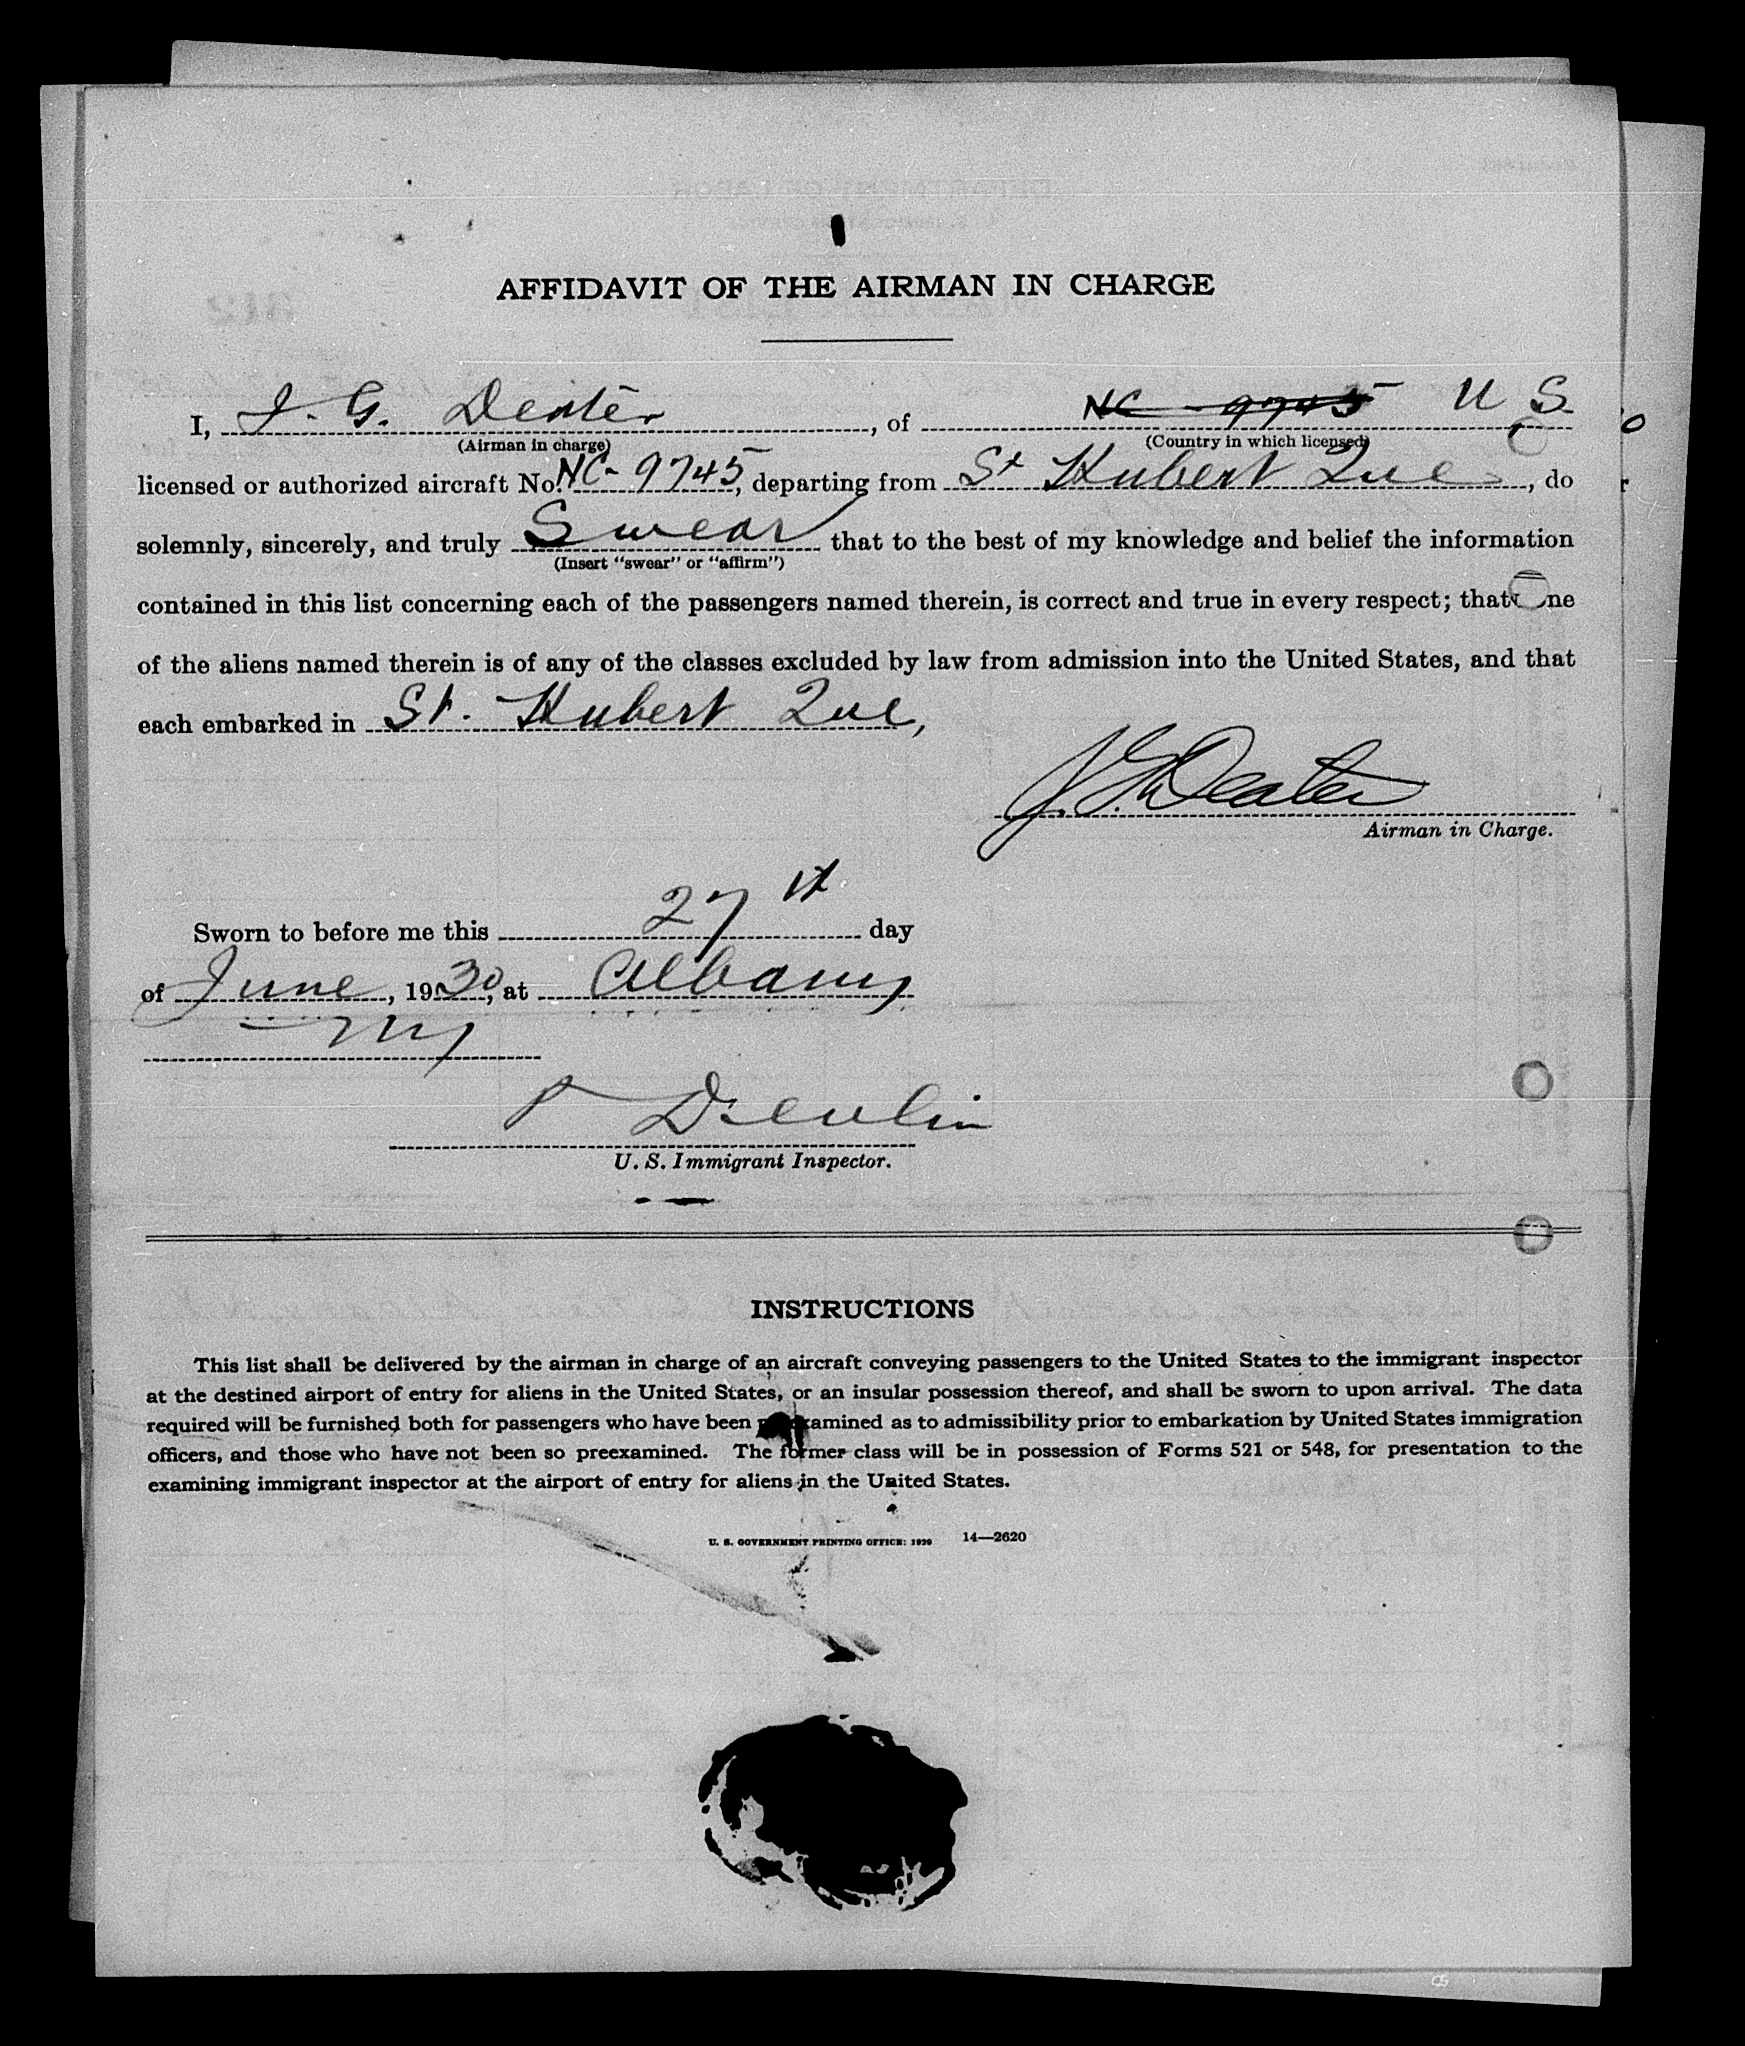 AFFIDAVIT OF THE AIRMAN IN CHARGE
I, J. G. Dexter, of NC-9745 U S
(Airman in charge) (Country in which licensed)
licensed or authorized aircraft No. NC-9745, departing from St Hubert Que, do
solemnly, sincerely, and truly Swear that to the best of my knowledge and belief the information
(Insert "swear" or "affirm")
contained in this list concerning each of the passengers named therein, is correct and true in every respect; that ne
of the aliens named therein is of any of the classes excluded by law from admission into the United States, and that
each embarked in St. Hubert Que,
J. G. Dexter
Airman in Charge.
Sworn to before me this 27th day
of June, 1930, at Albany
NY
P Devlin
U. S. Immigrant Inspector.
INSTRUCTIONS
This list shall be delivered by the airman in charge of an aircraft conveying passengers to the United States to the immigrant inspector
at the destined airport of entry for aliens in the United States, or an insular possession thereof, and shall be sworn to upon arrival. The data
required will be furnished both for passengers who have been preexamined as to admissibility prior to embarkation by United States immigration
officers, and those who have not been so preexamined. The former class will be in possession of Forms 521 or 548, for presentation to the
examining immigrant inspector at the airport of entry for aliens in the United States.
U. S. GOVERNMENT PRINTING OFFICE: 1929 14—2620